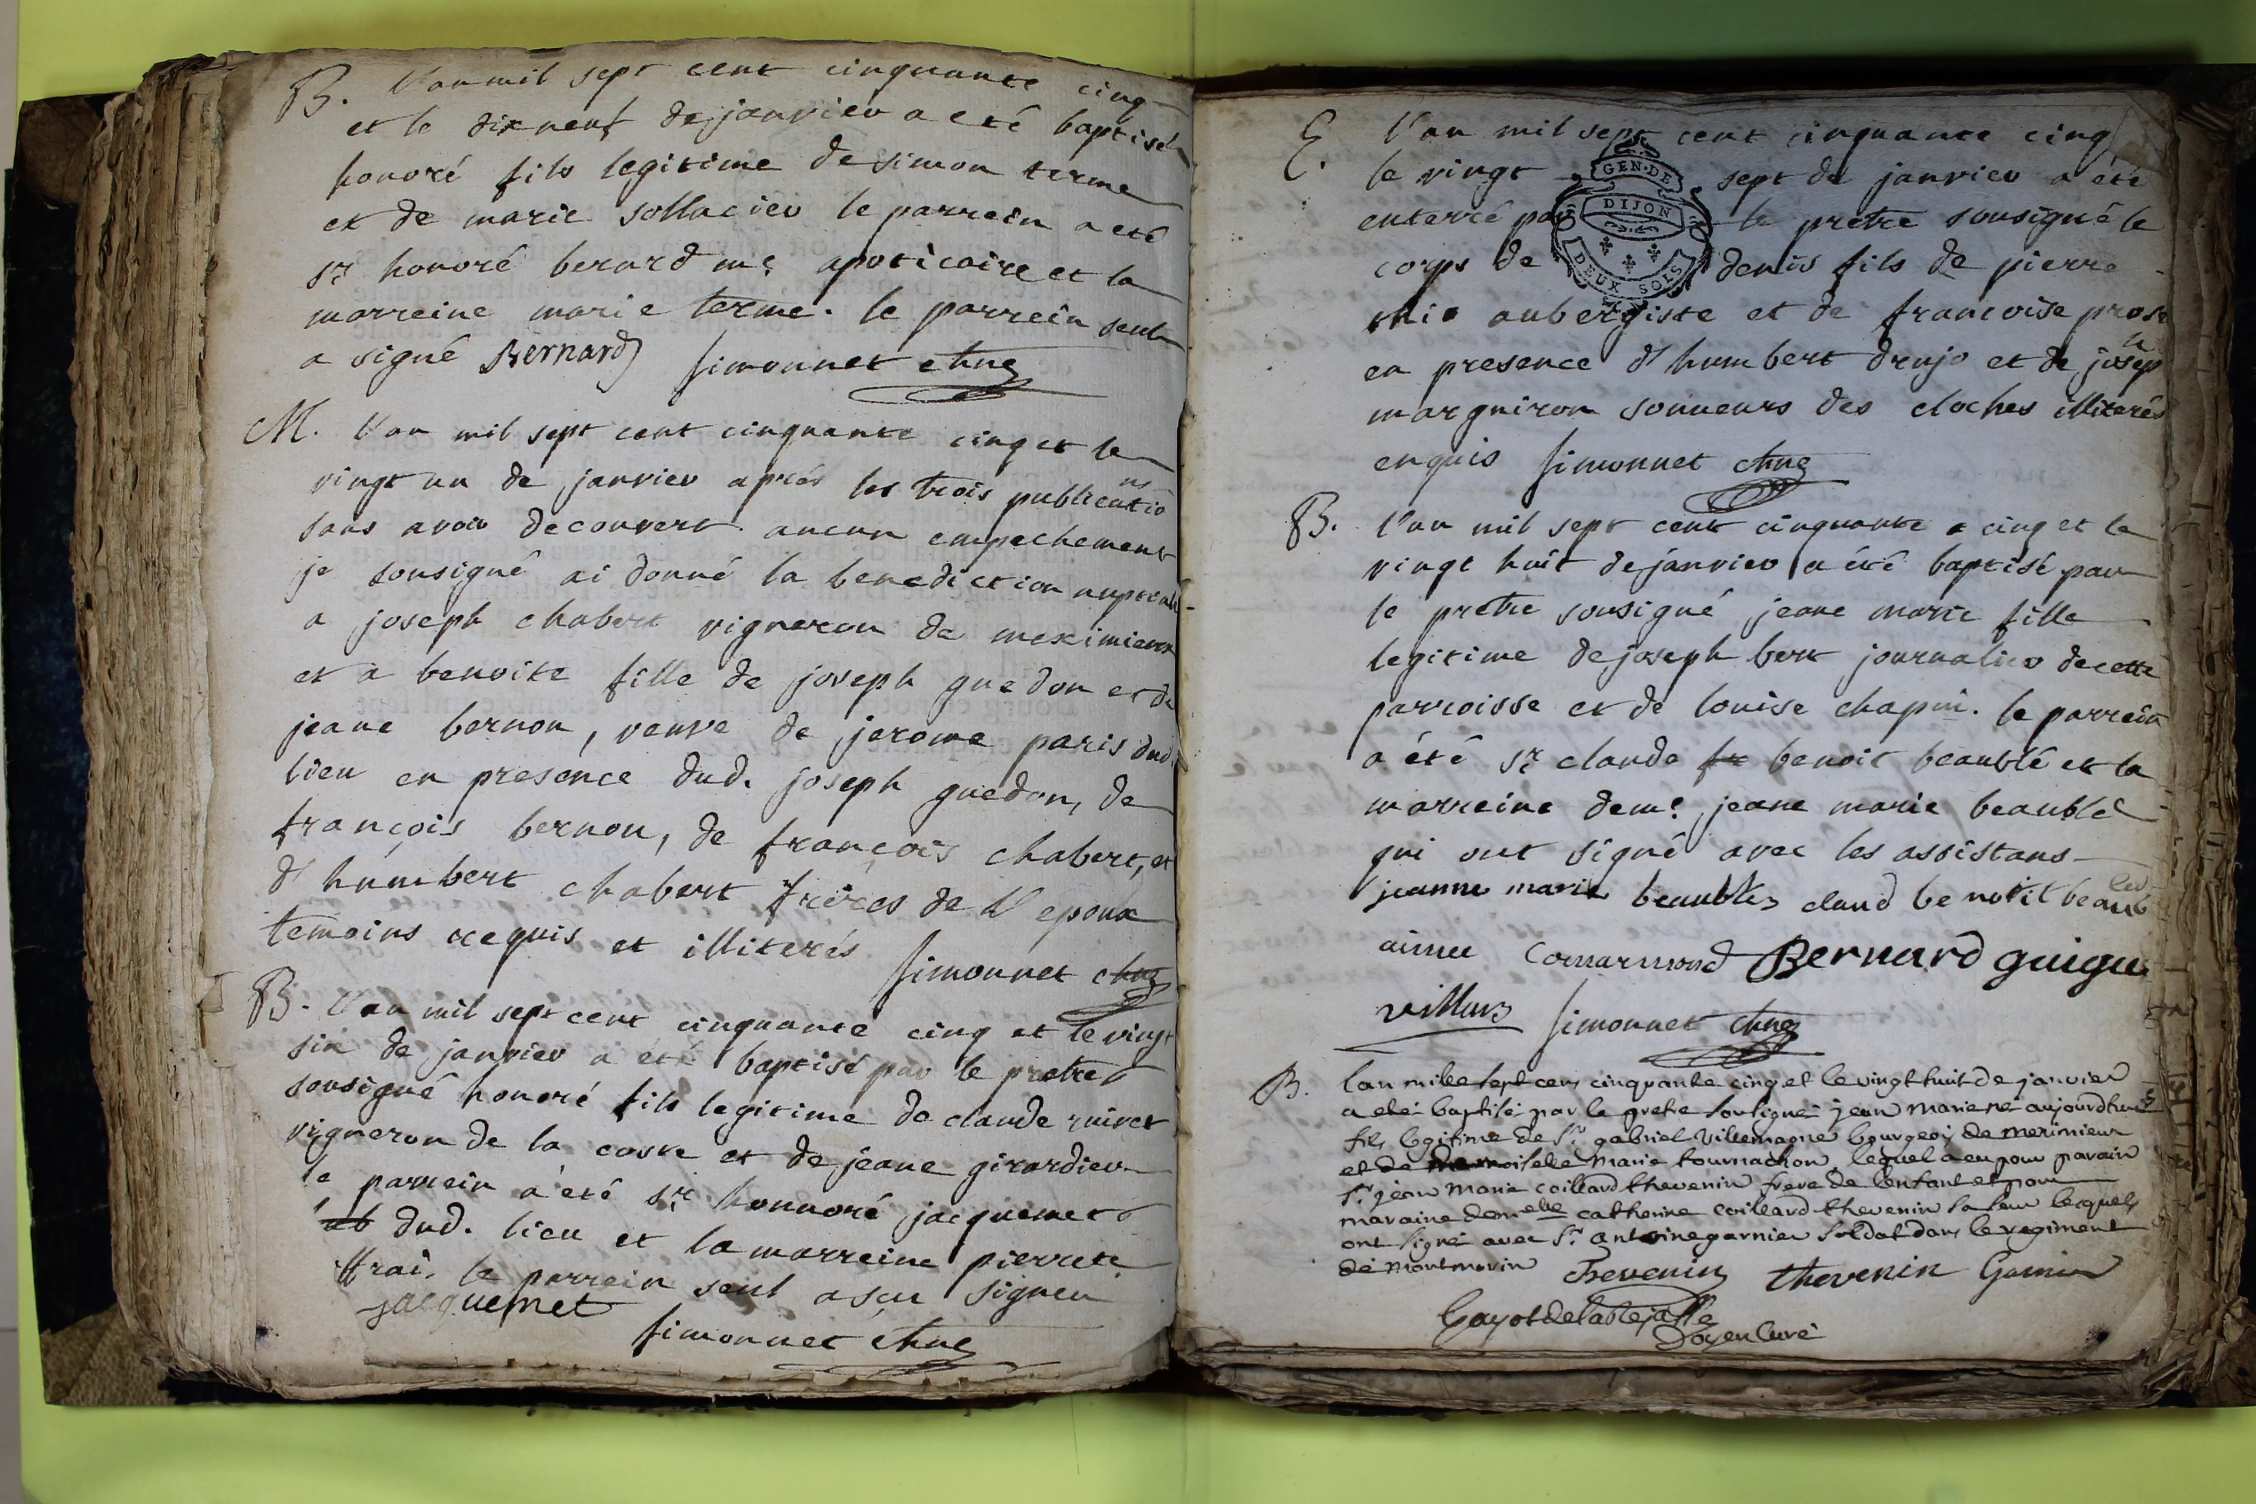 B. l'an mil sept cent cinquante cinq
et le dix neuf de janvier a eté baptisé
honoré fils legitime de simon terme
et de marie sollacier le parrein a eté
sr honoré berard me apoticaire et la
marreine marie terme. le parrein seul
a signé Bernard simonnet chne
M. l'an mil sept cent cinquante cinq et le
vingt un de janvier aprés les trois publicatiōns
sans avoir decouvert aucun empechement
je sousigné ai donné la benediction nuptiale
a joseph chabert vigneron de meximieux
et a benoite fille de joseph guedon et de
jeane bernon, veuve de jerome paris dud.
lieu en presence dud. joseph guedon, de
françois bernon, de françois chabert, et
d'humbert chabert freres de l'epoux
temoins requis et illiterés simonnet chne
B. l'an mil sept cent cinquante cinq et le vingt
six de janvier a eté baptisé par le pretre
sousigné honoré fils legitime de claude ruivet
vigneron de la coste et de jeane girardier
le parrein a été sr honnoré jacquemet
dud. lieu et la marreine pierrete
frai. le parrein seul a sçu signer
jacquemet
simonnet chne
E. l'an mil sept cent cinquante cinq
le vingt sept de janvier a été
enterré par le pretre sousigné le
corps de denis fils de pierre
mio aubergiste et de francoise prost
en presence d'humbert drujo et de joseph
marguiron sonneurs des cloches illiterés
enquis simonnet chne
GEN. DE
DIJON
DEUX SOLS
B. l'an mil sept cent cinquante cinq et le
vingt huit de janvier a été baptisé par
le pretre sousigné jeane marie fille
legitime de joseph bert journalier de cette
parroisse et de louise chapui. le parrein
a été sr claude benoit beaublé et la
marreine deme. jeane marie beaublé
qui ont signé avec les assistans
jeanne marie beaublez claud benoit beaublez
aimee Comarmond Bernard guigue
villars simonnet chne
B. lan mille sept cens cinquante cinq et le vingt huit de janvier
a eté baptisé par le pretre soussigné jean marie né aujourdhuy
fils legitime de Sr gabriel Villemagne bourgeois de meximieux
et de demoiselle Marie tournachon lequel a eu pour parain
Sr jean Marie coillard thevenin frere de lenfant et pour
maraine demelle catherine coillard thevenin sa seur lesquels
ont signé avec Sr antoine garnier soldat dans le regiment
de montmorin Thevenin thevenin Garnier
Gayot de lablejasse
Doyen Curé